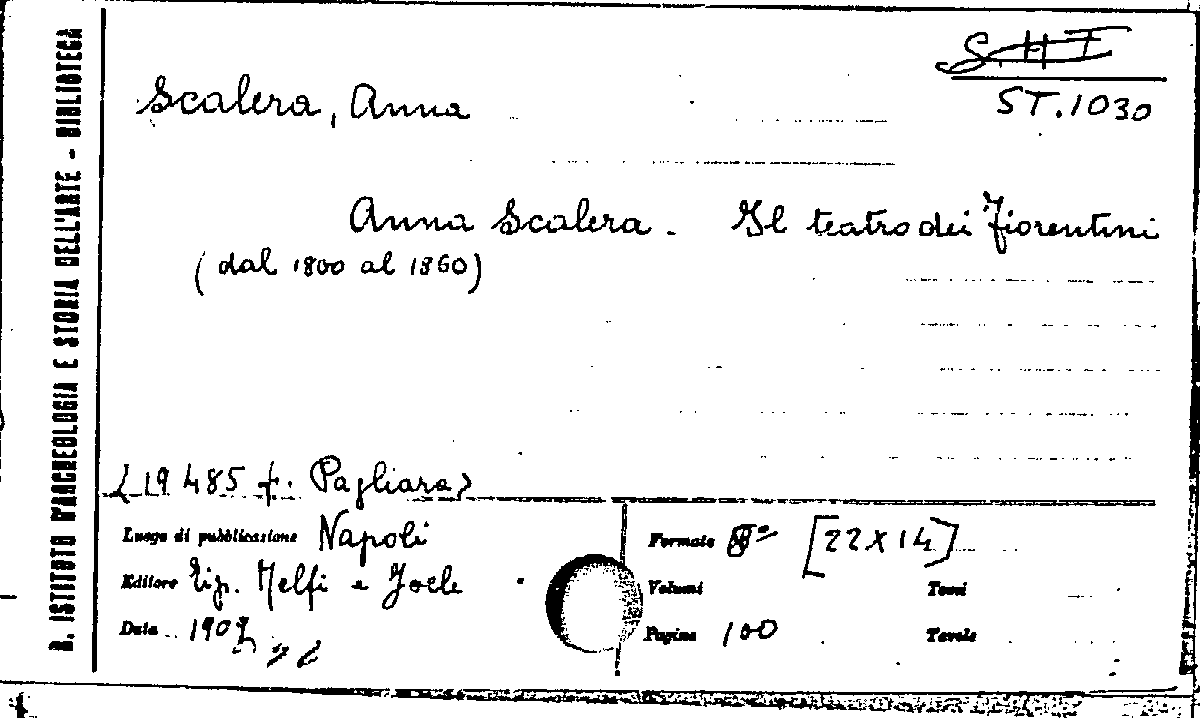 R. ISTITUTO D'ARCHEOLOGIA E STORIA DELL'ARTE - BIBLIOTECA
S. H I
ST. 1030
Scalera, Anna
Anna Scalera. Il teatro dei Fiorentini
(dal 1800 al 1860)
19 485 f. Pagliara
Luogo di pubblicazione Napoli
Editore Tip. Melfi e Joele
Data 1909
Formato 8º [22 x 14]
Volumi Tomi
Pagine 100 Tavole